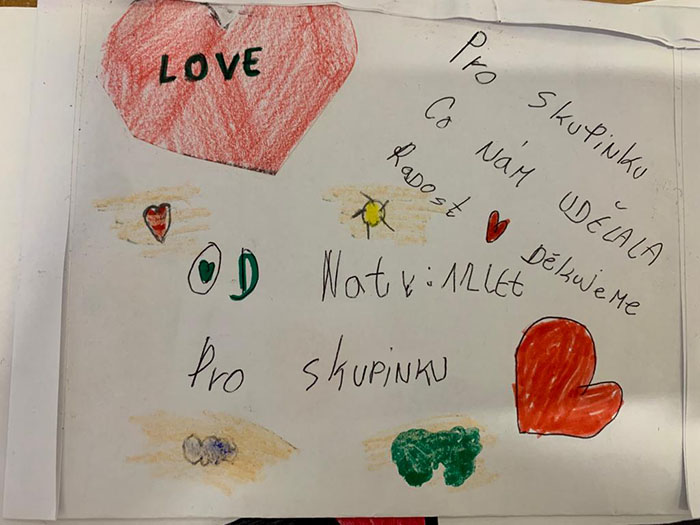 LOVE
Pro skupinku
Co nám udělala
Radost
Děkujeme
OD Naty: 12 let
Pro skupinku